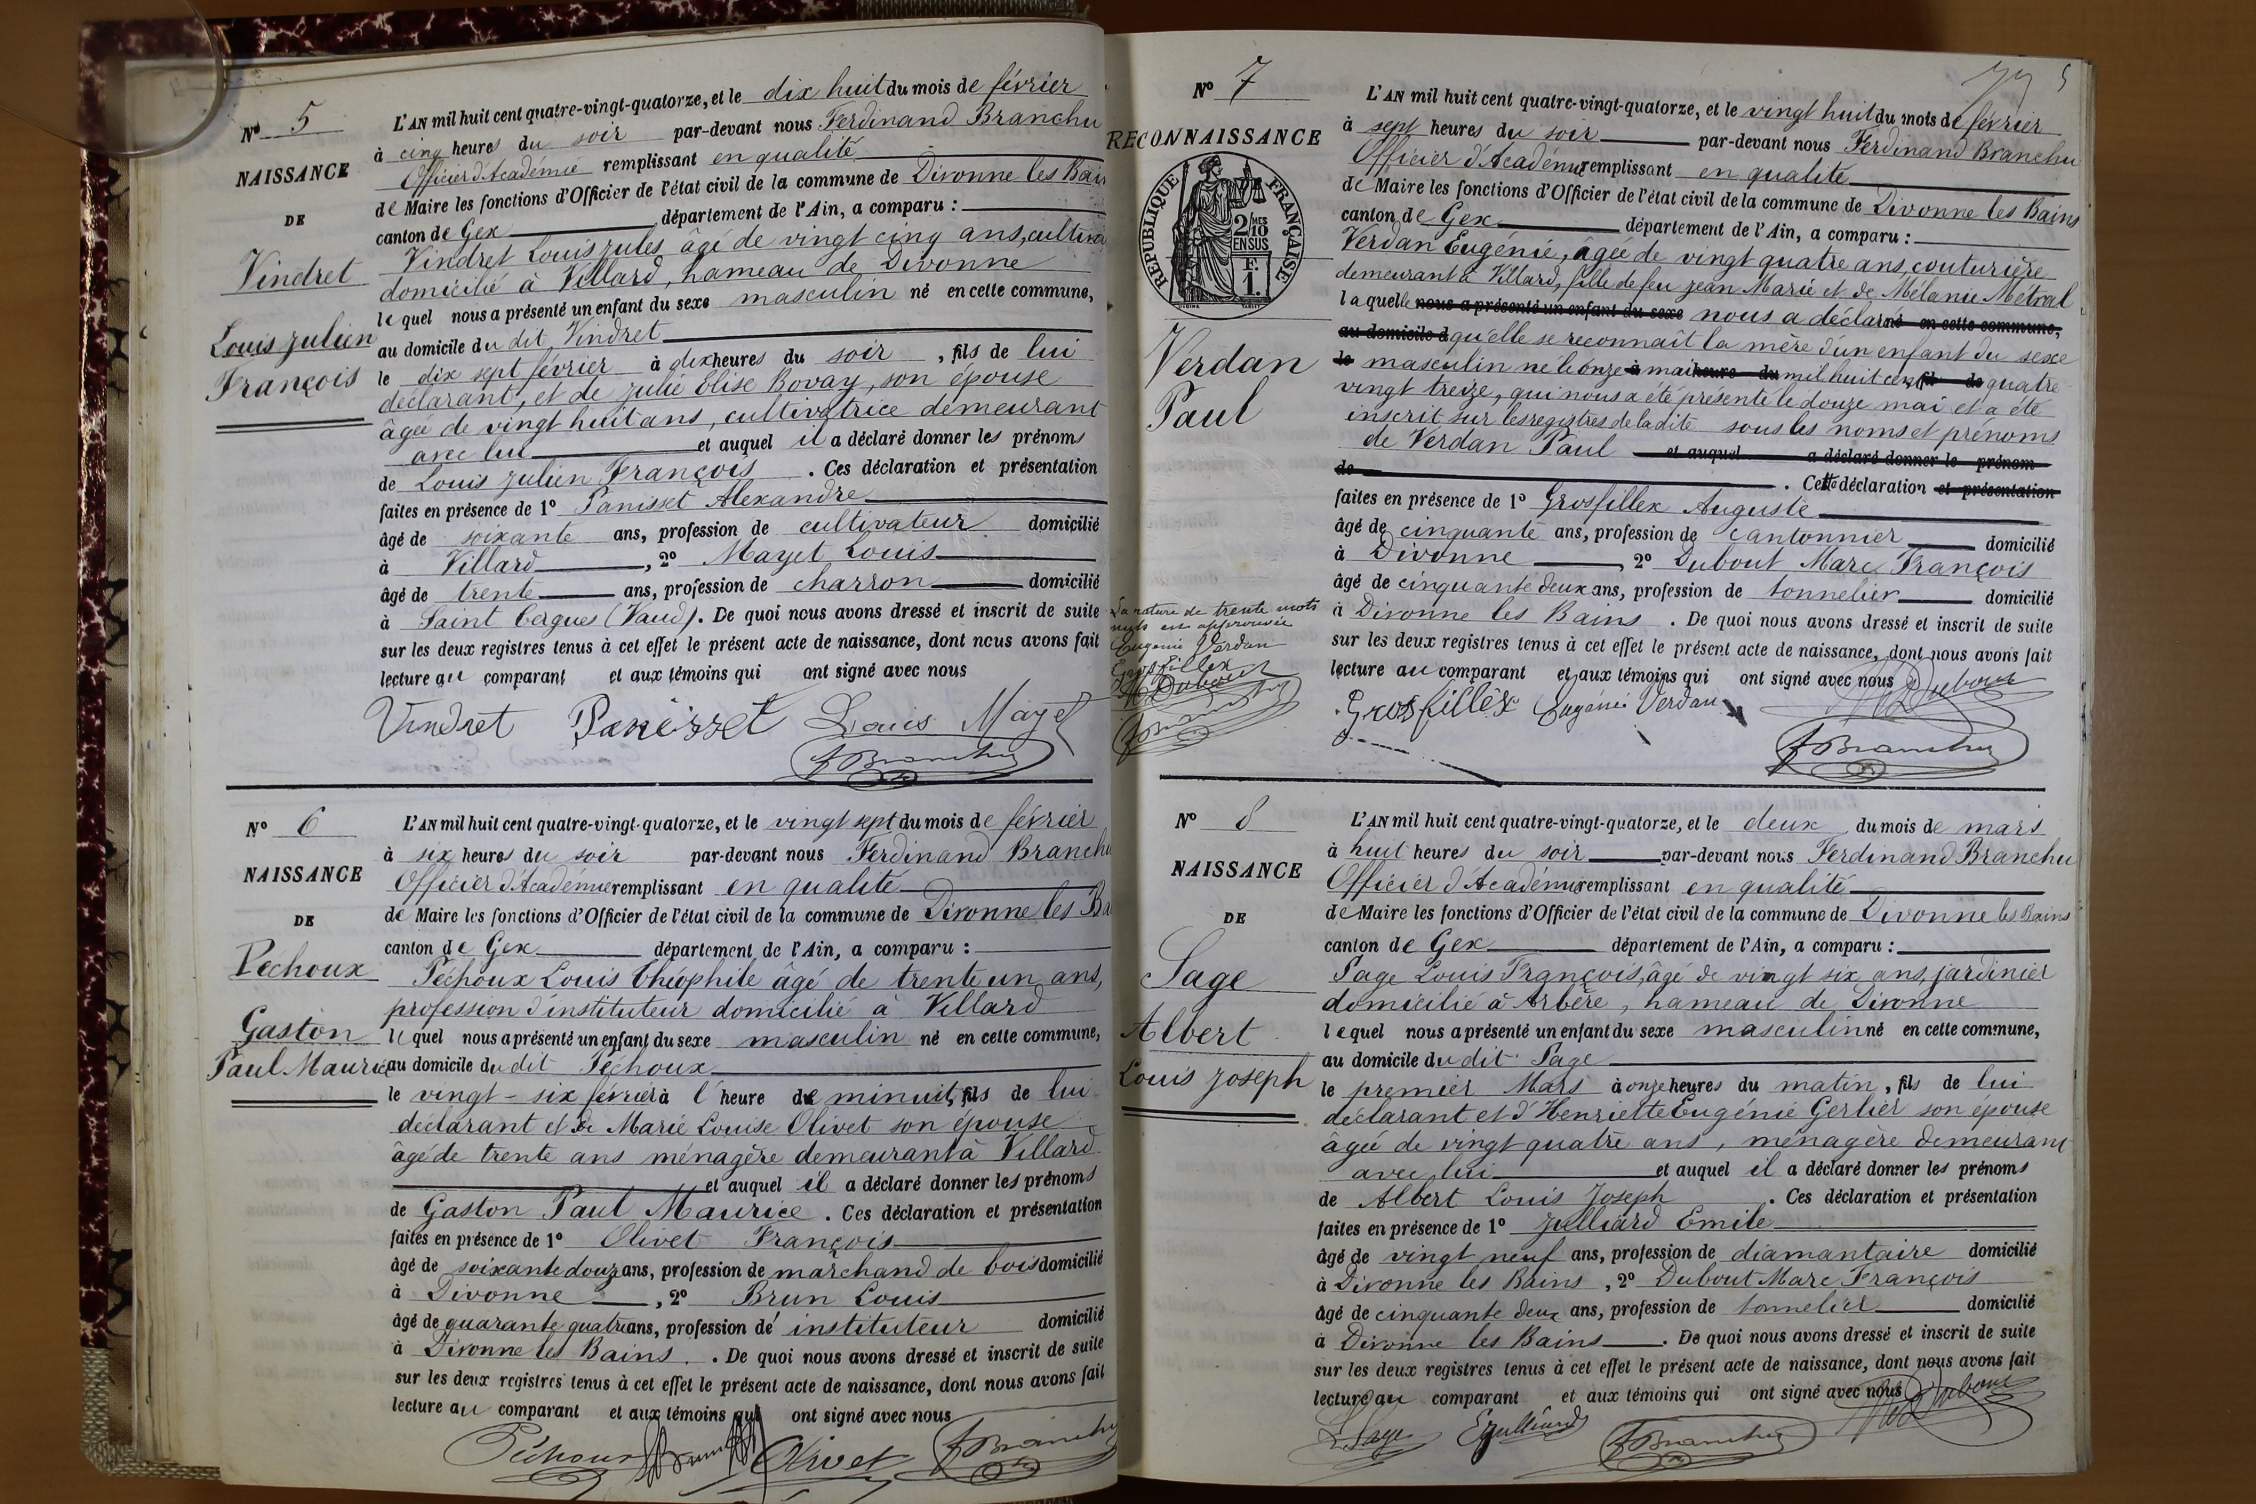 Nº 5
NAISSANCE
DE
Vindret
Louis Julien
François
L'AN mil huit cent quatre-vingt-quatorze, et le dix huit du mois de février
à cinq heures du soir par-devant nous Ferdinand Branchu
Officier d'Académie remplissant en qualité
de Maire les fonctions d'Officier de l'état civil de la commune de Divonne les Bains
canton de Gex département de l'Ain, a comparu :
Vindret Louis Jules âgé de vingt cinq ans, cultiva
domicilié à Villard, hameau de Divonne
lequel nous a présenté un enfant du sexe masculin né en cette commune,
au domicile du dit Vindret
le dix sept février à dix heures du soir, fils de lui
déclarant, et de Julie Elise Bovay, son épouse
âgée de vingt huit ans, cultivatrice demeurant
avec lui et auquel il a déclaré donner les prénoms
de Louis Julien François. Ces déclaration et présentation
faites en présence de 1º Panisset Alexandre
âgé de soixante ans, profession de cultivateur domicilié
à Villard, 2º Mayet Louis
âgé de trente ans, profession de charron domicilié
à Saint Cergues (Vaud). De quoi nous avons dressé et inscrit de suite
sur les deux registres tenus à cet effet le présent acte de naissance, dont nous avons fait
lecture au comparant et aux témoins qui ont signé avec nous
Vindret Panisset Louis Mayet
F Branchu
Nº 6
NAISSANCE
DE
Péchoux
Gaston
Paul Maurice
L'AN mil huit cent quatre-vingt-quatorze, et le vingt sept du mois de février
à six heures du soir par-devant nous Ferdinand Branchu
Officier d'Académie remplissant en qualité
de Maire les fonctions d'Officier de l'état civil de la commune de Divonne les Ba
canton de Gex département de l'Ain, a comparu :
Péchoux Louis Théophile âgé de trente un ans,
profession d'instituteur domicilié à Villard
lequel nous a présenté un enfant du sexe masculin né en cette commune,
au domicile du dit Péchoux
le vingt-six février à l'heure de minuit, fils de lui
déclarant et de Marie Louise Olivet son épouse
âgé de trente ans ménagère demeurant à Villard
et auquel il a déclaré donner les prénoms
de Gaston Paul Maurice. Ces déclaration et présentation
faites en présence de 1º Olivet François
âgé de soixante douz ans, profession de marchand de bois domicilié
à Divonne, 2º Brun Louis
âgé de quarante quatre ans, profession de instituteur domicilié
à Divonne les Bains. De quoi nous avons dressé et inscrit de suite
sur les deux registres tenus à cet effet le présent acte de naissance, dont nous avons fait
lecture au comparant et aux témoins qui ont signé avec nous
Péchoux Brun Olivet F Branchu
5
Nº 7
RECONNAISSANCE
RÉPUBLIQUE FRANÇAISE
2/10 MES
EN SUS
F.
1.
Verdan
Paul
L'AN mil huit cent quatre-vingt-quatorze, et le vingt huit du mois de février
à sept heures du soir par-devant nous Ferdinand Branchu
Officier d'Académie remplissant en qualité
de Maire les fonctions d'Officier de l'état civil de la commune de Divonne les Bains
canton de Gex département de l'Ain, a comparu :
Verdan Eugénie, âgée de vingt quatre ans, couturière
demeurant à Villard, fille de feu Jean Marie et de Mélanie Métral
laquelle nous a présenté un enfant du sexe nous a déclaré né en cette commune,
au domicile d qu'elle se reconnaît la mère d'un enfant du sexe
le masculin né le onze à mai heure du mil huit cent fil de quatre
vingt treize, qui nous a été présenté le douze mai et a été
inscrit sur les registres de la dite sous les noms et prénoms
de Verdan Paul et auquel a déclaré donner le prénom
de . Cette déclaration et présentation
faites en présence de 1º Grosfillex Auguste
âgé de cinquante ans, profession de cantonnier domicilié
à Divonne, 2º Dubout Marc François
âgé de cinquante deux ans, profession de tonnelier domicilié
à Divonne les Bains. De quoi nous avons dressé et inscrit de suite
sur les deux registres tenus à cet effet le présent acte de naissance, dont nous avons fait
lecture au comparant et aux témoins qui ont signé avec nous
La rature de trente mots
nuls est approuvée
Eugénie Verdan
Grosfillex
M Dubout
F Branchu
Grosfillex Eugénie Verdan M Dubout
F Branchu
Nº 8
NAISSANCE
DE
Sage
Albert
Louis Joseph
L'AN mil huit cent quatre-vingt-quatorze, et le deux du mois de mars
à huit heures du soir par-devant nous Ferdinand Branchu
Officier d'Académie remplissant en qualité
de Maire les fonctions d'Officier de l'état civil de la commune de Divonne les Bains
canton de Gex département de l'Ain, a comparu :
Sage Louis François, âgé de vingt six ans, jardinier
domicilié à Arbère, hameau de Divonne
lequel nous a présenté un enfant du sexe masculin né en cette commune,
au domicile du dit Sage
le premier Mars à onze heures du matin, fils de lui
déclarant et d'Henriette Eugénie Gerlier son épouse
âgée de vingt quatre ans, ménagère demeurant
avec lui et auquel il a déclaré donner les prénoms
de Albert Louis Joseph. Ces déclaration et présentation
faites en présence de 1º Julliard Emile
âgé de vingt neuf ans, profession de diamantaire domicilié
à Divonne les Bains, 2º Dubout Marc François
âgé de cinquante deux ans, profession de tonnelier domicilié
à Divonne les Bains. De quoi nous avons dressé et inscrit de suite
sur les deux registres tenus à cet effet le présent acte de naissance, dont nous avons fait
lecture au comparant et aux témoins qui ont signé avec nous M Dubout
L Sage E Julliard F Branchu